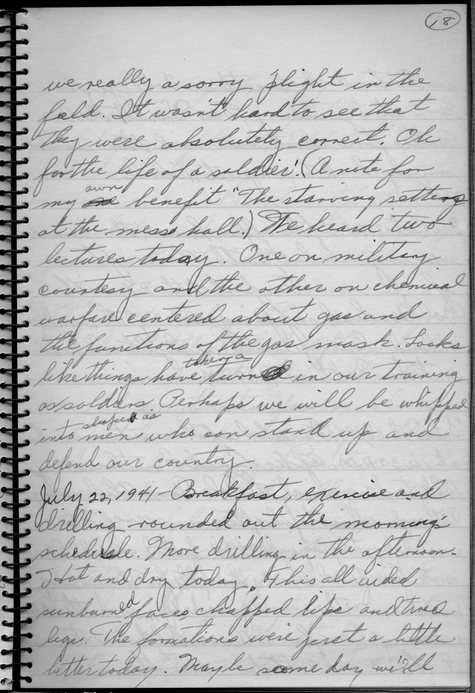 18
we really a sorry flight in the
field. It wasn't hard to see that
they were absolutely correct. Oh
for the life of a soldier! (A note for
my own benefit "The starving settings
at the mess hall.) We heard two
lectures today. One on military
courtesy and the other on chemical
warfare centered about gas and
the functions of the gas mask. Looks
like things have taken a turn in our training
as soldiers. Perhaps we will be whipped
into shape as men who can stand up and
defend our country.
July 22, 1941 - Breakfast, exercise and
drilling rounded out the morning's
schedule. More drilling in the afternoon.
Hot and dry today. This all aided
sunburned faces chapped lips and tired
legs. The formations were just a little
better today. Maybe some day we'll